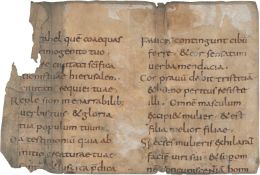 rahel quē coaequas
imogenito tuo
e ciuitati scifica
tionis tuae hierusalem
ciuitati requiei tuae
Reple sion inenarrabilib;
uerbis tuis & gloria
tua populum tuum
Da testimonia quia ab
initio creaturae tuae
suscita
Fauces contingunt cibū
ferae & cor sensatum
uerba mendacia
Cor prauū dabit tristitiā
& homo peritus resist&
illi Omnē masculum
excipi& mulier & est
filia melior filiae
Species mulieris exhilarat
faciē uiri sui & sup om